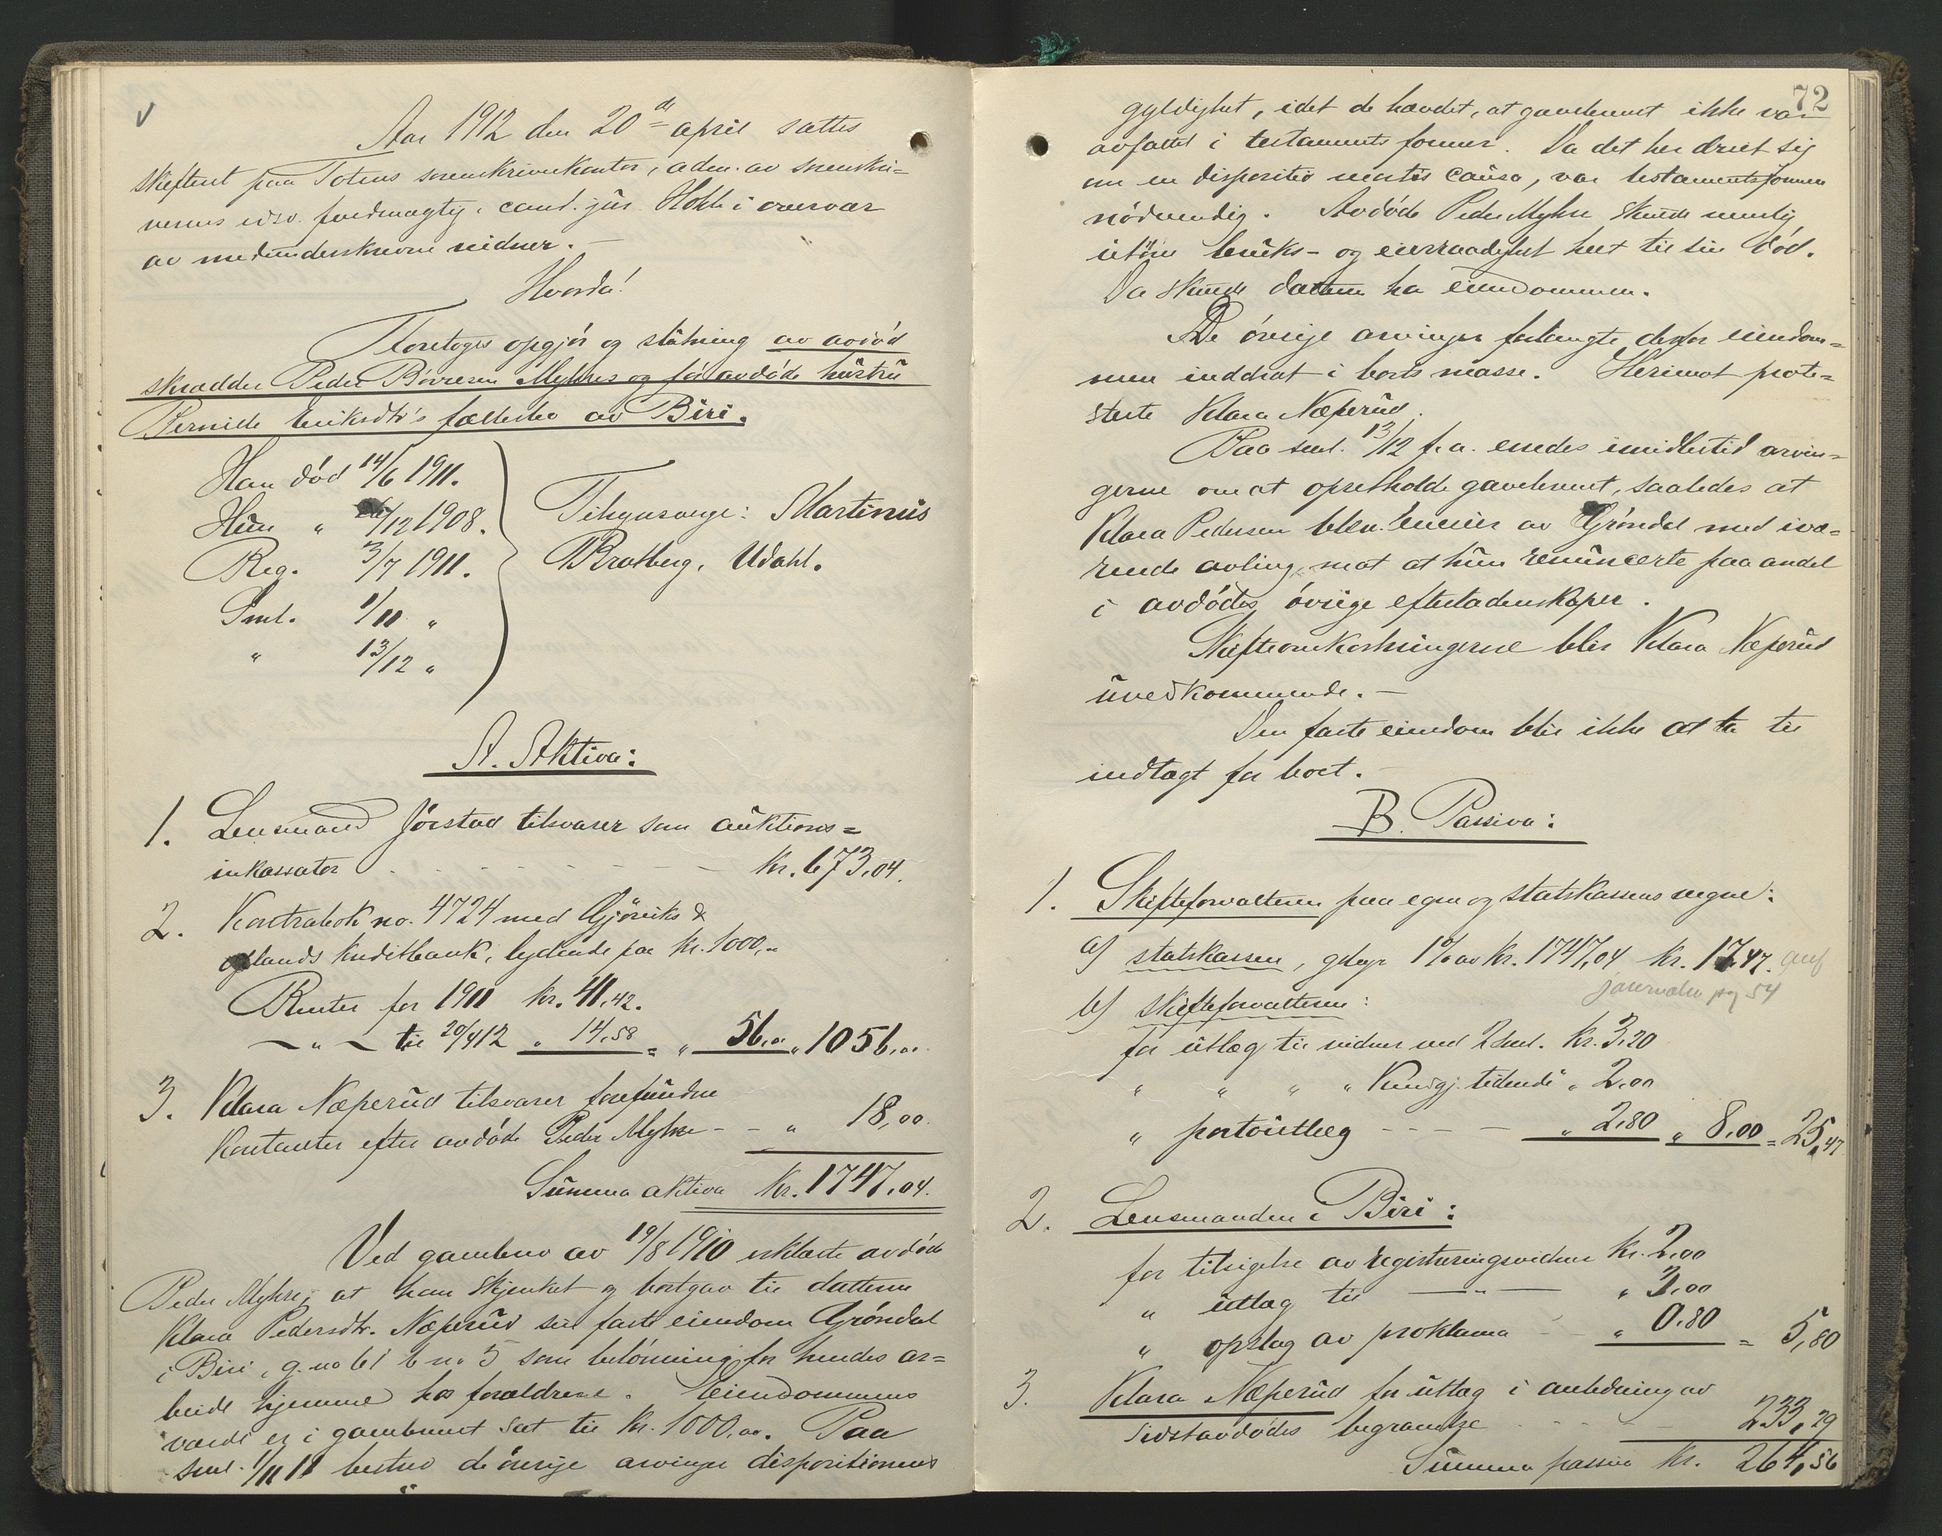 Aar 1912 den 20de april sattes
skifteret paa Totens sorenskriverkontor, adm. av sorenskri-
verens edsv. fuldmægtig, cand. jur. Holst i overvær
av medunderskrevne vidner. —
Hvorda!
Foretoges opgjør og slutning av avdød
skrædder Peder Børresen Myhres og før avdøde hustru
Pernille Eriksdtr's fællesbo av Biri.
Han død 14/6 1911.
Hun " /12 1908.
Reg. 3/7 1911.
Sml. 1/11 "
" 13/12 "
Tilsynsverge: Martinius
Bratberg, Udahl.
A. Aktiva:
1. Lensmand Jørstad tilsvarer som auktions=
inkassator kr. 673,04.
2. Kontrabok no. 4724 med Gjøviks &
oplands kreditbank, lydende paa kr. 1000,"
Renter for 1911 kr. 41,42.
— " — til 20/4 12 " 14,58 = " 56,00 " 1056,00.
3. Klara Næperud tilsvarer forefundne
kontanter efter avdøde Peder Myhre - - " 18,00.
Summa aktiva kr. 1747,04.
Ved gavebrev av 19/8 1910 erklærte avdøde
Peder Myhre, at han skjenket og bortgav til datteren
Klara Pedersdtr. Næperud sin faste eiendom Grøndal
i Biri, g. no 61 b. no 5 som belønning for hendes ar=
beide hjemme hos forældrene. Eiendommens
værdi er i gavebrevet sat til kr. 1000,00. Paa
sml. 1/11 11 bestred de øvrige arvinger dispositionens
72
gyldighet, idet de hævdet, at gavebrevet ikke var
avfattet i testaments former. Da det her dreiet sig
om en dispositio mortis causa, var testamentsformen
nødvendig. Avdøde Peder Myhre skulde nemlig
utøve bruks- og eierraadighet helt til sin død.
Da skulde datteren ha eiendommen.
De øvrige arvinger forlangte derfor eiendom=
men inddrat i boets masse. Herimot prote=
sterte Klara Næperud.
Paa sml. 13/12 f. a. enedes imidlertid arvin=
gerne om at opretholde gavebrevet, saaledes at
Klara Pedersen blev eneeier av Grøndal med ivæ=
rende avling, mot at hun renuncerte paa andel
i avdødes øvrige efterladenskaper.
Skifteomkostningerne blir Klara Næperud
uvedkommende. —
Den faste eiendom blir ikke at ta til
indtægt for boet. -
B. Passiva:
1. Skifteforvalteren paa egne og statskassens vegne:
a) statskassen, gebyr 1% av kr. 1747,04 kr. 17,47. anf
journalen pag 54
b) skifteforvalteren:
for utlæg til vidner ved 2 sml. kr. 3,20
" " " " Kundgj. tidende " 2,00
" portoutlæg - - - - " 2,80 " 8,00 = 25,47
2. Lensmanden i Biri:
for tilsigelse av registreringsvidner kr. 2,00
" utlæg til — " — " 3,00
" opslag av proklama " 0,80 = 5,80
3. Klara Næperud for utlæg i anledning av
sidstavdødes begravelse 233,29
Summa passiva kr. 264,56